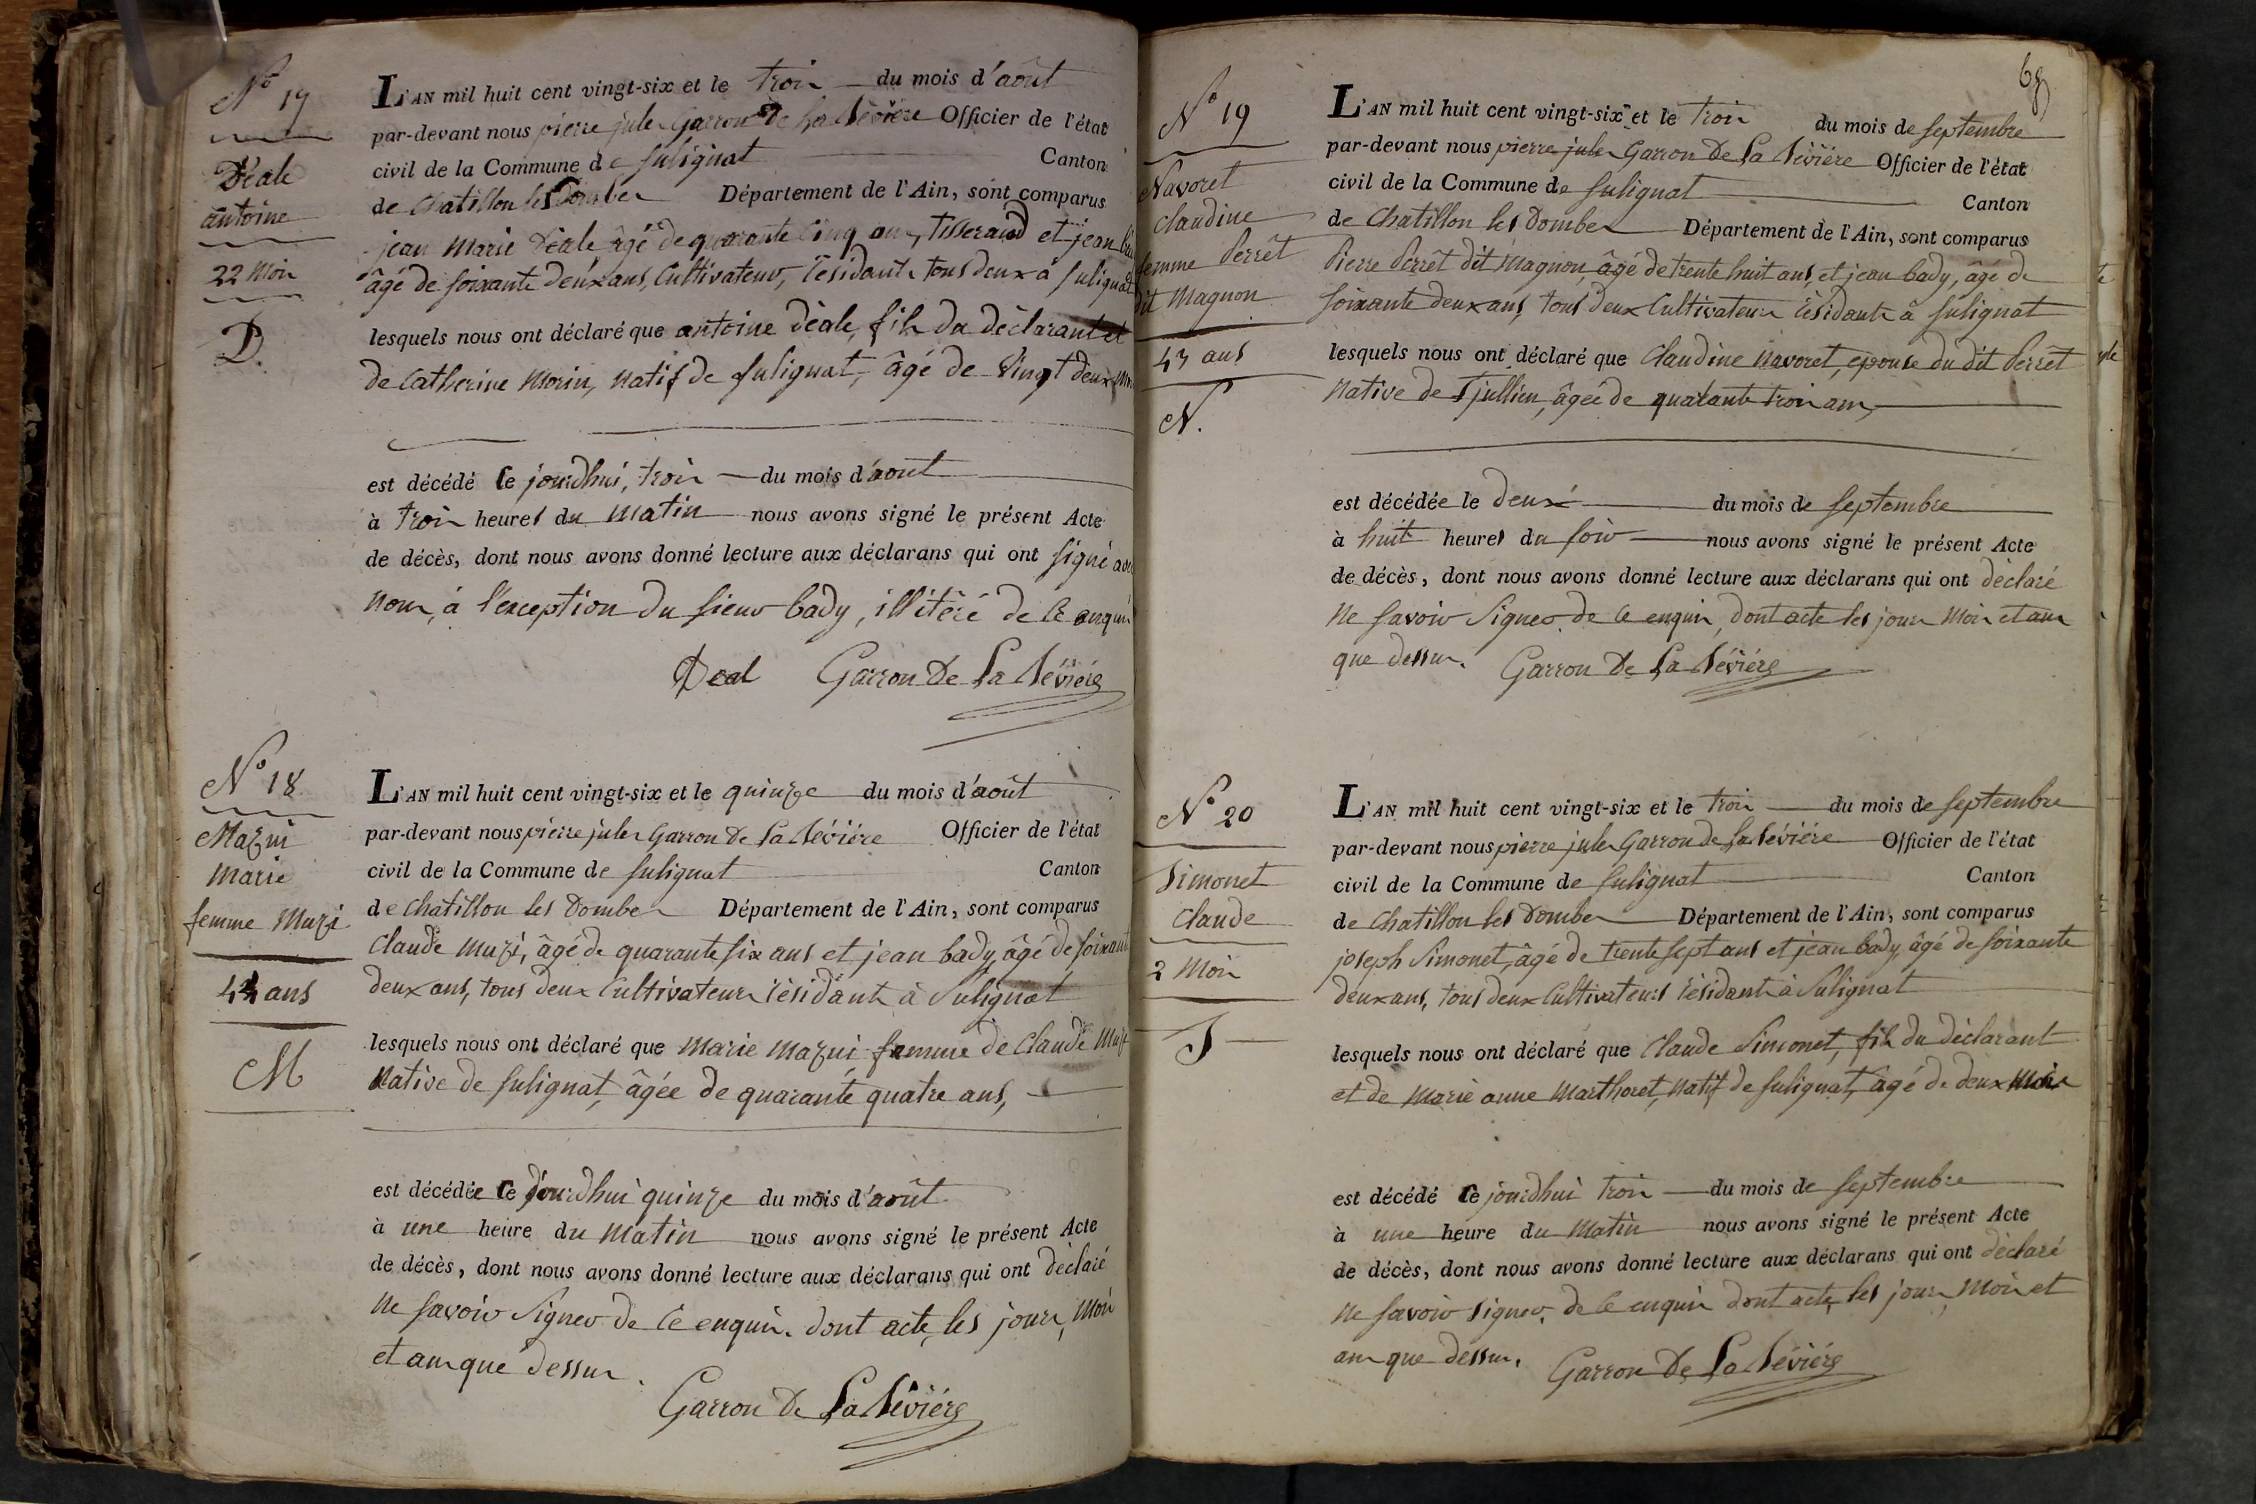 No 17
Déale
antoine
22 mois
D.
L'AN mil huit cent vingt-six et le trois du mois d'août
par-devant nous pierre jules Garron De La Bévière Officier de l'état
civil de la Commune de Sulignat Canton
de Chatillon les Dombes Département de l'Ain, sont comparus
jean Marie Déale âgé de quarante Cinq ans, Tisserand et jean
âgé de soixante deux ans, Cultivateur, résidants tous deux à Sulignat
lesquels nous ont déclaré que antoine déale, fils du déclarant et
de Catherine Morin, natif de Sulignat, âgé de vingt deux mois
est décédé Ce jourdhui, trois du mois d'août
à trois heures du matin nous avons signé le présent Acte
de décès, dont nous avons donné lecture aux déclarans qui ont signé avec
nous, à l'exception du sieur bady, illitéré de ce enquis
Deal Garron De La Bévière
No 18
Mazui
Marie
femme Muzi
44 ans
M
L'AN mil huit cent vingt-six et le quinze du mois d'août
par-devant nous pierre jules Garron De La Bévière Officier de l'état
civil de la Commune de Sulignat Canton
de Chatillon les Dombes Département de l'Ain, sont comparus
Claude Muzi, âgé de quarante six ans et jean bady, âgé de soixante
deux ans, tous deux Cultivateurs résidants à Sulignat
lesquels nous ont déclaré que Marie Mazui femme de Claude Muzi
Native de Sulignat, âgée de quarante quatre ans,
est décédée Ce jourdhui quinze du mois d'août
à une heure du matin nous avons signé le présent Acte
de décès, dont nous avons donné lecture aux déclarans qui ont déclaré
Ne savoir Signer de Ce enquis. dont acte, les jour, mois
et an que dessus.
Garron De La Bévière
68
No 19
Navoret
Claudine
femme Perrêt
dit Magnon
43 ans
N.
L'AN mil huit cent vingt-six et le trois du mois de septembre
par-devant nous pierre jules Garron De La Bévière Officier de l'état
civil de la Commune de Sulignat Canton
de Chatillon les Dombes Département de l'Ain, sont comparus
Pierre Perrêt dit Magnon, âgé de trente huit ans, et jean bady, âgé de
soixante deux ans, tous deux Cultivateurs résidants à Sulignat
lesquels nous ont déclaré que Claudine Navoret, epouse du dit Perrêt
Native de St jullien, âgée de quarante trois ans,
est décédée le deux du mois de septembre
à huit heures du soir nous avons signé le présent Acte
de décès, dont nous avons donné lecture aux déclarans qui ont déclaré
Ne savoir Signer de Ce enquis, dont acte les jour Mois et an
que dessus. Garron De La Bévière
No 20
Simonet
Claude
2 Mois
S
L'AN mil huit cent vingt-six et le trois du mois de septembre
par-devant nous pierre jules Garron de La Bévière Officier de l'état
civil de la Commune de Sulignat Canton
de Chatillon les Dombes Département de l'Ain, sont comparus
joseph Simonet, âgé de trente sept ans et jean bady, âgé de soixante
deux ans, tous deux Cultivateurs résidants à Sulignat
lesquels nous ont déclaré que Claude Simonet, fils du déclarant
et de Marie anne Marthoret, natif de Sulignat, âgé de deux mois
est décédé Ce jourdhui trois du mois de septembre
à une heure du matin nous avons signé le présent Acte
de décès, dont nous avons donné lecture aux déclarans qui ont déclaré
Ne savoir signer, de Ce enquis dont acte, les jour, Mois et
an que dessus. Garron De La Bévière